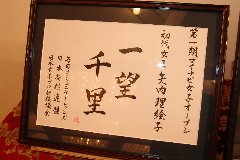 第一期マイナビ女子オープン
初代女王 矢内理絵子
一望
千里
日本将棋連盟